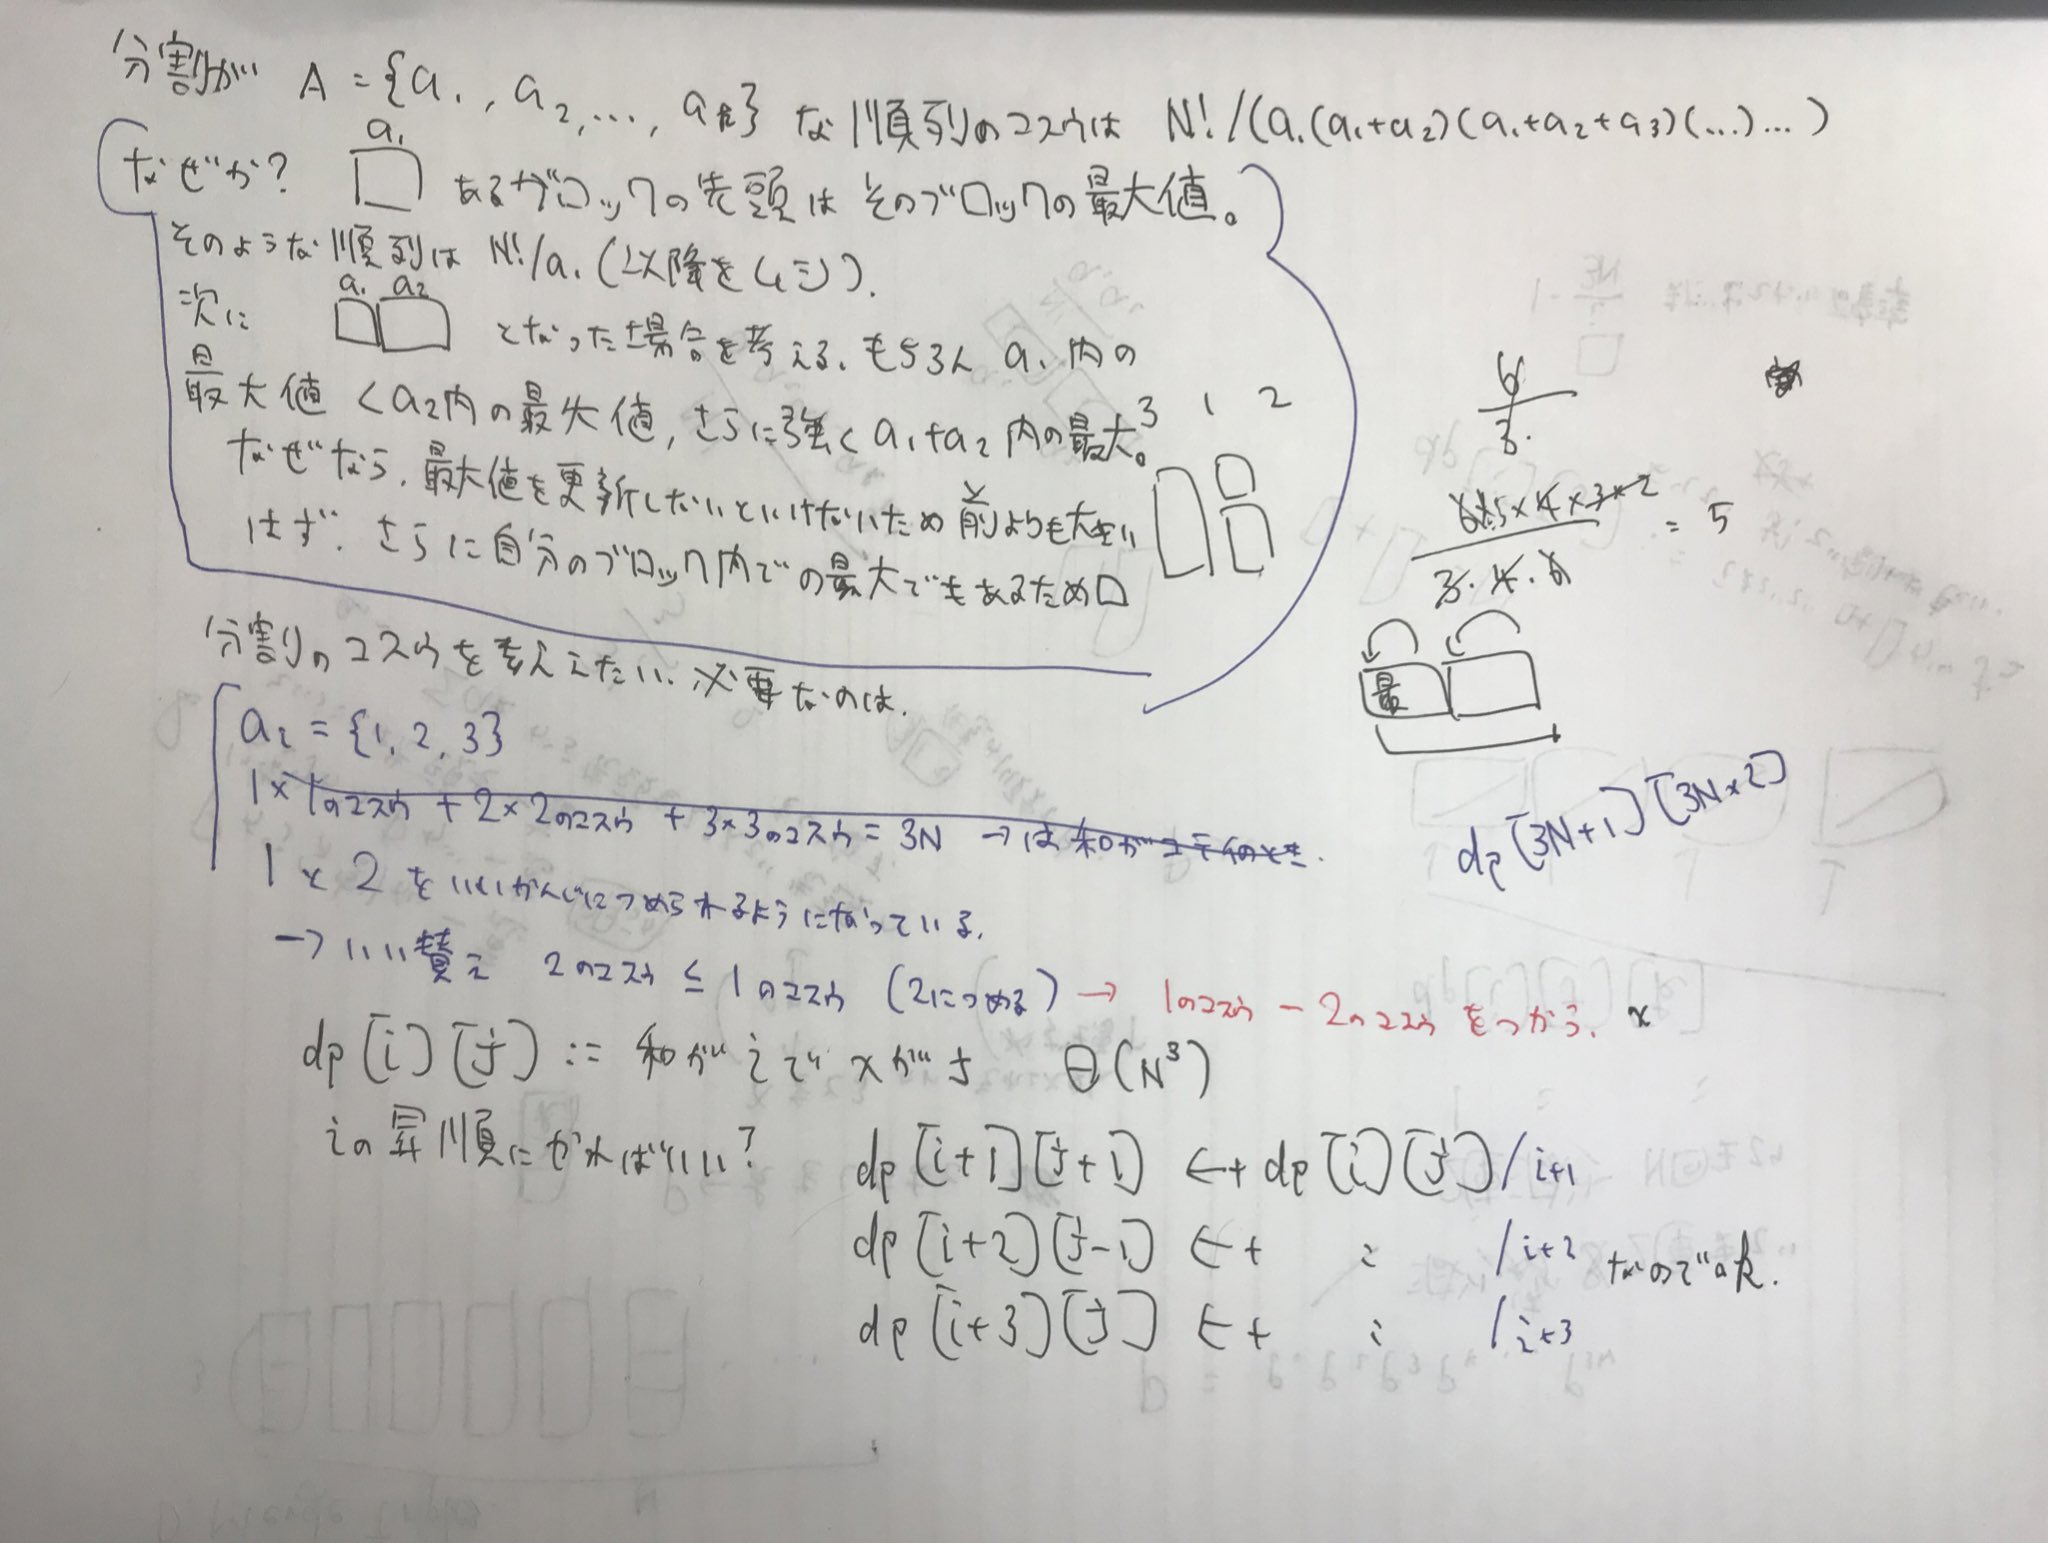 分割が A = {a₁, a₂, ..., aₖ} な順列のコスウは N! / (a₁(a₁+a₂)(a₁+a₂+a₃)(...)...)
なぜか? a₁ あるブロックの先頭はそのブロックの最大値。
そのような順列は N!/a₁ (以降をムシ).
次に a₁ a₂ となった場合を考える. もちろん a₁内の
最大値 < a₂内の最大値, さらに強く a₁+a₂ 内の最大。
なぜなら、最大値を更新しないといけないため 前よりも大きい
はず. さらに自分のブロック内での最大でもあるため□
3 1 2
6
3.
6×5×4×3×2
3・4・6
= 5
最
分割のコスウを考えたい. 必要なのは.
a₂ = {1, 2, 3}
1×1のコスウ + 2×2のコスウ + 3×3のコスウ = 3N → は和が
1と2をいいかんじにつめられるようになっている.
→ いい替え 2のコスウ ≤ 1のコスウ (2につめる) → 1のコスウ - 2のコスウ をつかう. x
dp[3N+1][3N×2]
dp[i][j] := 和がiでxがj Θ(N³)
iの昇順にやればいい?
dp[i+1][j+1] ←+ dp[i][j] / i+1
dp[i+2][j-1] ←+ : / i+2 なのでok.
dp[i+3][j] ←+ : / i+3